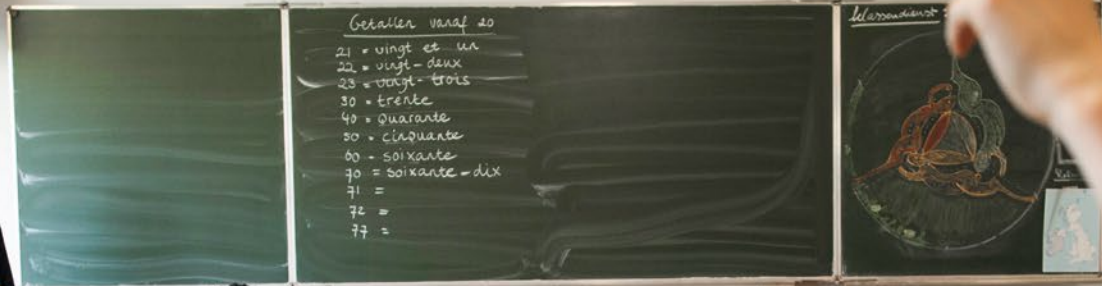 Getallen vanaf 20
21 = vingt et un
22 = vingt-deux
23 = vingt-trois
30 = trente
40 = Quarante
50 = cinquante
60 - soixante
70 = soixante-dix
71 =
72 =
77 =
klassendienst